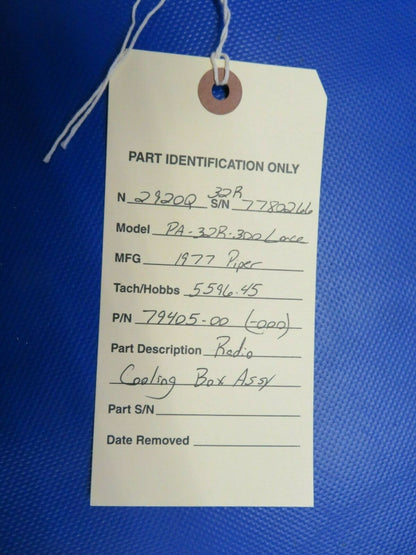 PART IDENTIFICATION ONLY
32R
N 2920Q S/N 7780266
Model PA-32R-300 Lance
MFG 1977 Piper
Tach/Hobbs 5596.45
P/N 79405-00 (-000)
Part Description Radio
Cooling Box Assy
Part S/N
Date Removed